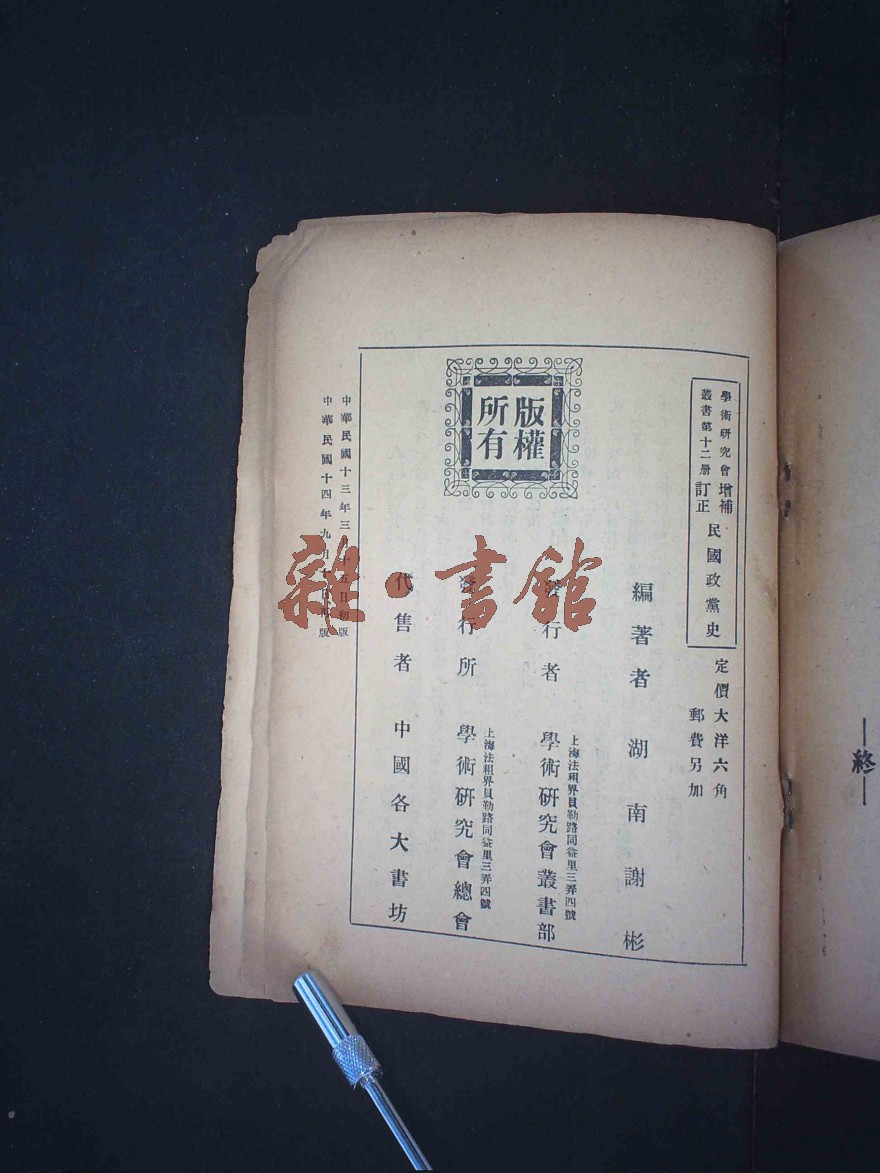 學術研究會
叢書第十二册
增補
訂正
民國政黨史
定價大洋六角
郵費另加
編著者 湖南謝彬
發行者
上海法租界貝勒路同益里三弄四號
學術研究會叢書部
發行所
上海法租界貝勒路同益里三弄四號
學術研究會總會
代售者 中國各大書坊
版權
所有
中華民國十三年三月十五日初版
中華民國十四年九月十日版
雜·書館
終